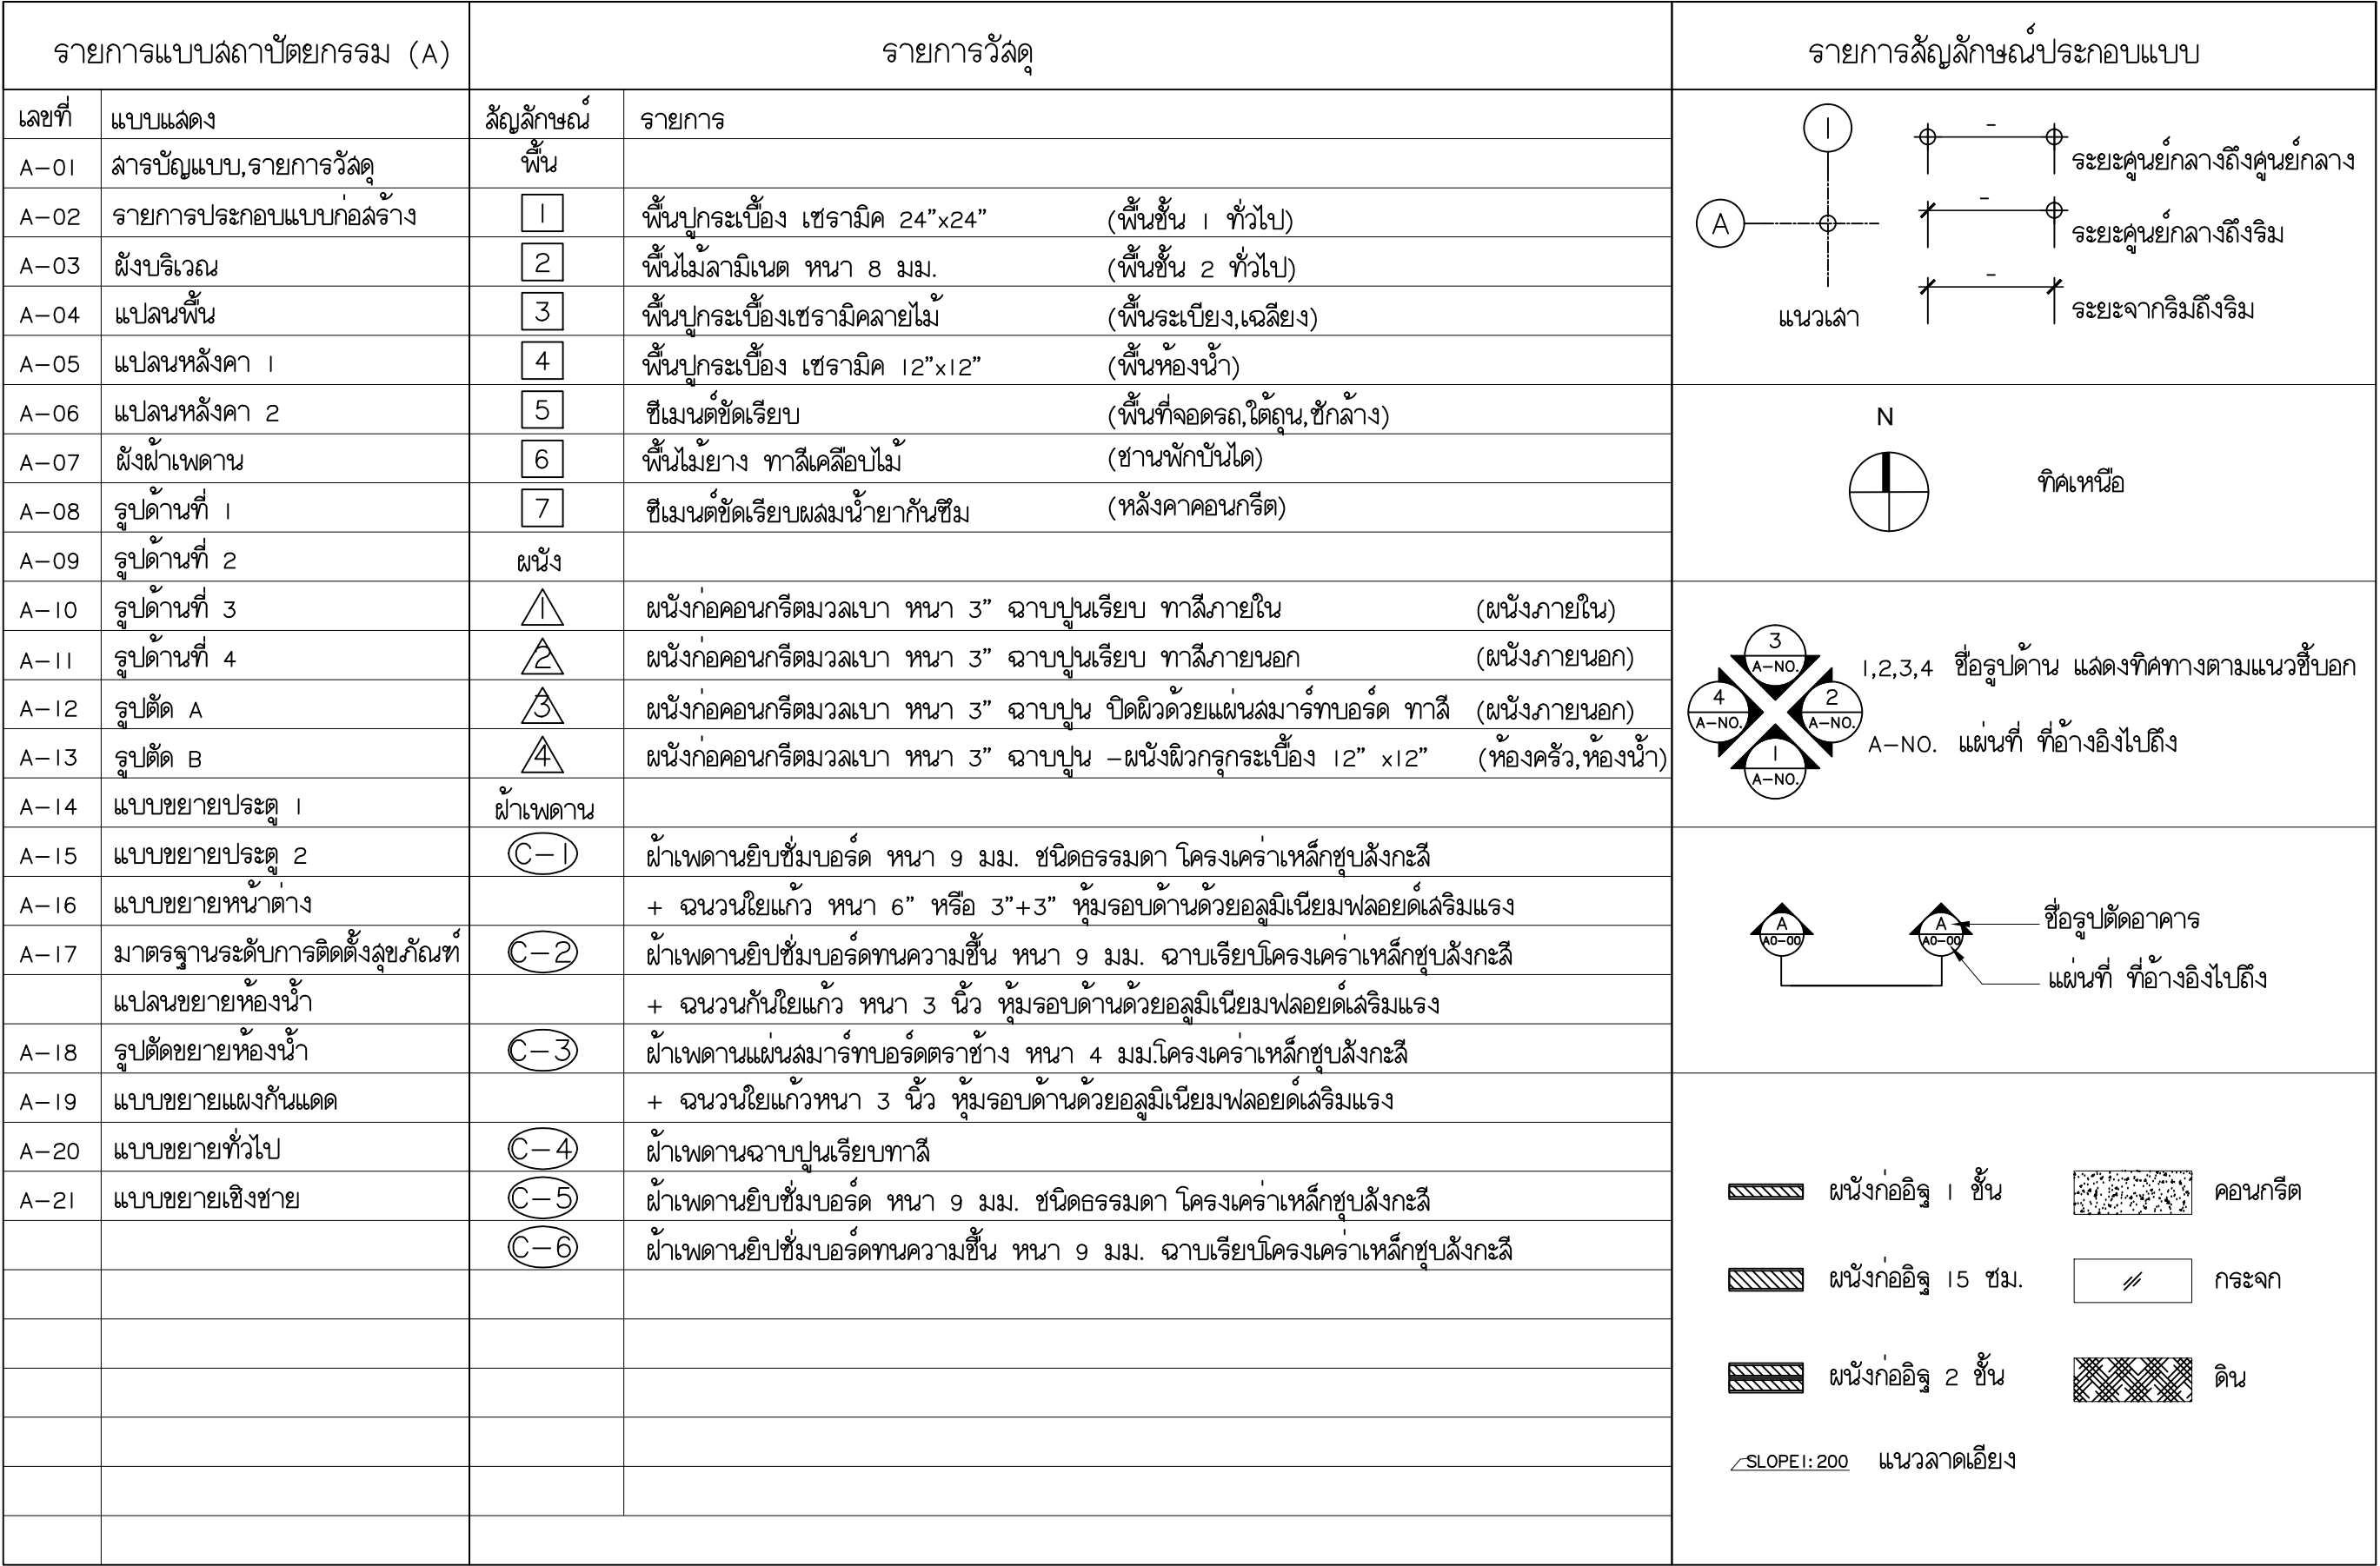 รายการแบบสถาปัตยกรรม (A)
เลขที่ แบบแสดง
A-01 สารบัญแบบ,รายการวัสดุ
A-02 รายการประกอบแบบก่อสร้าง
A-03 ผังบริเวณ
A-04 แปลนพื้น
A-05 แปลนหลังคา 1
A-06 แปลนหลังคา 2
A-07 ผังฝ้าเพดาน
A-08 รูปด้านที่ 1
A-09 รูปด้านที่ 2
A-10 รูปด้านที่ 3
A-11 รูปด้านที่ 4
A-12 รูปตัด A
A-13 รูปตัด B
A-14 แบบขยายประตู 1
A-15 แบบขยายประตู 2
A-16 แบบขยายหน้าต่าง
A-17 มาตรฐานระดับการติดตั้งสุขภัณฑ์
แปลนขยายห้องน้ำ
A-18 รูปตัดขยายห้องน้ำ
A-19 แบบขยายแผงกันแดด
A-20 แบบขยายทั่วไป
A-21 แบบขยายเชิงชาย
รายการวัสดุ
สัญลักษณ์ รายการ
พื้น
1 พื้นปูกระเบื้อง เซรามิค 24"x24" (พื้นชั้น 1 ทั่วไป)
2 พื้นไม้ลามิเนต หนา 8 มม. (พื้นชั้น 2 ทั่วไป)
3 พื้นปูกระเบื้องเซรามิคลายไม้ (พื้นระเบียง,เฉลียง)
4 พื้นปูกระเบื้อง เซรามิค 12"x12" (พื้นห้องน้ำ)
5 ซีเมนต์ขัดเรียบ (พื้นที่จอดรถ,ใต้ถุน,ซักล้าง)
6 พื้นไม้ยาง ทาสีเคลือบไม้ (ชานพักบันได)
7 ซีเมนต์ขัดเรียบผสมน้ำยากันซึม (หลังคาคอนกรีต)
ผนัง
1 ผนังก่อคอนกรีตมวลเบา หนา 3" ฉาบปูนเรียบ ทาสีภายใน (ผนังภายใน)
2 ผนังก่อคอนกรีตมวลเบา หนา 3" ฉาบปูนเรียบ ทาสีภายนอก (ผนังภายนอก)
3 ผนังก่อคอนกรีตมวลเบา หนา 3" ฉาบปูน ปิดผิวด้วยแผ่นสมาร์ทบอร์ด ทาสี (ผนังภายนอก)
4 ผนังก่อคอนกรีตมวลเบา หนา 3" ฉาบปูน -ผนังผิวกรุกระเบื้อง 12" x12" (ห้องครัว,ห้องน้ำ)
ฝ้าเพดาน
C-1 ฝ้าเพดานยิบซั่มบอร์ด หนา 9 มม. ชนิดธรรมดา โครงเคร่าเหล็กชุบสังกะสี
+ ฉนวนใยแก้ว หนา 6" หรือ 3"+3" หุ้มรอบด้านด้วยอลูมิเนียมฟลอยด์เสริมแรง
C-2 ฝ้าเพดานยิปซั่มบอร์ดทนความชื้น หนา 9 มม. ฉาบเรียบโครงเคร่าเหล็กชุบสังกะสี
+ ฉนวนกันใยแก้ว หนา 3 นิ้ว หุ้มรอบด้านด้วยอลูมิเนียมฟลอยด์เสริมแรง
C-3 ฝ้าเพดานแผ่นสมาร์ทบอร์ดตราช้าง หนา 4 มม.โครงเคร่าเหล็กชุบสังกะสี
+ ฉนวนใยแก้วหนา 3 นิ้ว หุ้มรอบด้านด้วยอลูมิเนียมฟลอยด์เสริมแรง
C-4 ฝ้าเพดานฉาบปูนเรียบทาสี
C-5 ฝ้าเพดานยิบซั่มบอร์ด หนา 9 มม. ชนิดธรรมดา โครงเคร่าเหล็กชุบสังกะสี
C-6 ฝ้าเพดานยิปซั่มบอร์ดทนความชื้น หนา 9 มม. ฉาบเรียบโครงเคร่าเหล็กชุบสังกะสี
รายการสัญลักษณ์ประกอบแบบ
1
A
แนวเสา
ระยะศูนย์กลางถึงศูนย์กลาง
ระยะศูนย์กลางถึงริม
ระยะจากริมถึงริม
N
ทิศเหนือ
3
A-NO.
4
A-NO.
2
A-NO.
1
A-NO.
1,2,3,4 ชื่อรูปด้าน แสดงทิศทางตามแนวชี้บอก
A-NO. แผ่นที่ ที่อ้างอิงไปถึง
A
A0-00
A
A0-00
ชื่อรูปตัดอาคาร
แผ่นที่ ที่อ้างอิงไปถึง
ผนังก่ออิฐ 1 ชั้น คอนกรีต
ผนังก่ออิฐ 15 ซม. กระจก
ผนังก่ออิฐ 2 ชั้น ดิน
SLOPE1:200 แนวลาดเอียง